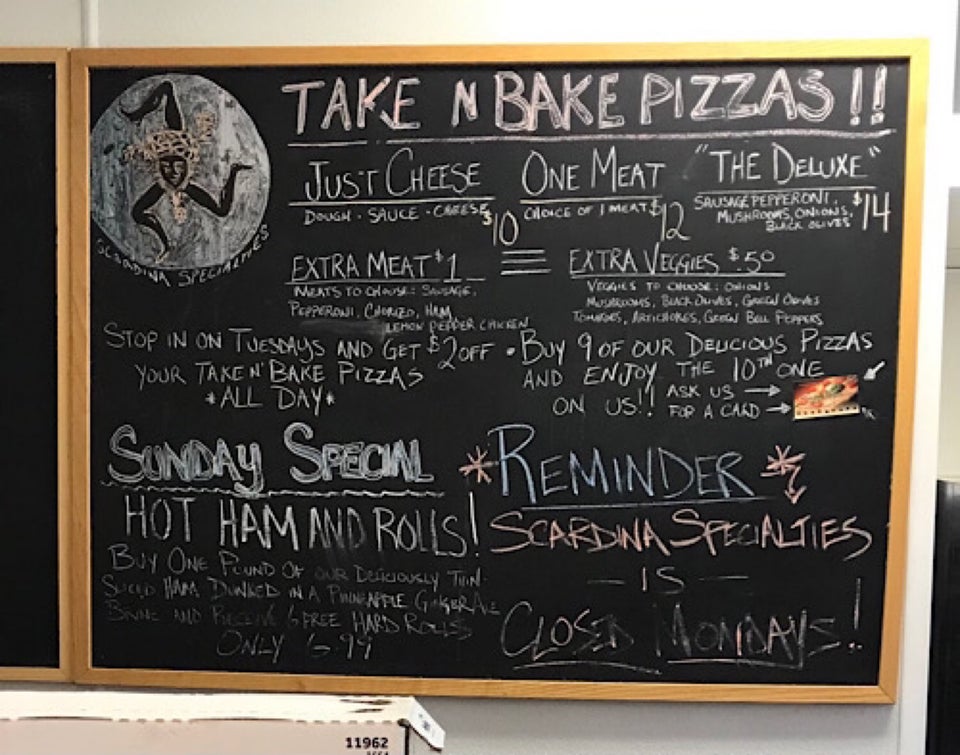 TAKE N BAKE PIZZAS!!
JUST CHEESE
DOUGH · SAUCE · CHEESE $10
ONE MEAT
CHOICE OF 1 MEAT $12
"THE DELUXE"
SAUSAGE, PEPPERONI,
MUSHROOMS, ONIONS,
BLACK OLIVES $14
SCARDINA SPECIALTIES
EXTRA MEAT $1
MEATS TO CHOOSE: SAUSAGE,
PEPPERONI, CHORIZO, HAM
LEMON PEPPER CHICKEN
EXTRA VEGGIES $.50
VEGGIES TO CHOOSE: ONIONS
MUSHROOMS, BLACK OLIVES, GREEN OLIVES
TOMATOES, ARTICHOKES, GREEN BELL PEPPERS
STOP IN ON TUESDAYS AND GET $2 OFF
YOUR TAKE N' BAKE PIZZAS
*ALL DAY*
• BUY 9 OF OUR DELICIOUS PIZZAS
AND ENJOY THE 10TH ONE
ON US!! ASK US →
FOR A CARD →
SUNDAY SPECIAL
HOT HAM AND ROLLS!
BUY ONE POUND OF OUR DELICIOUSLY THIN
SLICED HAM DUNKED IN A PINEAPPLE GINGER ALE
BRINE AND RECEIVE 6 FREE HARD ROLLS
ONLY 6.99
*REMINDER*
SCARDINA SPECIALTIES
— IS —
CLOSED MONDAYS!
11962